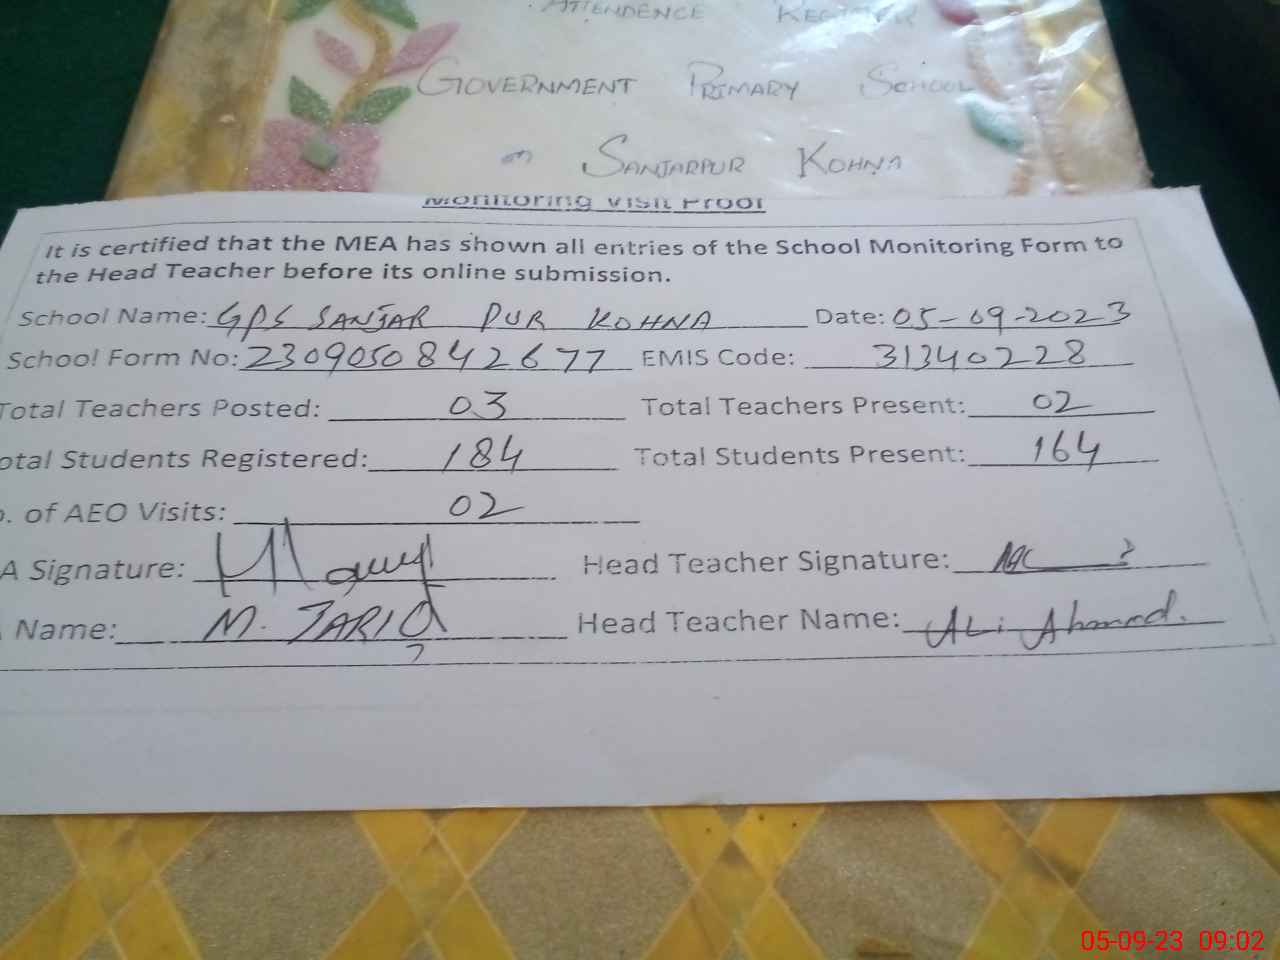 ATTENDENCE REGISTER
GOVERNMENT PRIMARY SCHOOL
SANJARPUR KOHNA
Monitoring Visit Proof
It is certified that the MEA has shown all entries of the School Monitoring Form to
the Head Teacher before its online submission.
School Name: GPS SANJAR PUR KOHNA Date: 05-09-2023
School Form No: 2309050842677 EMIS Code: 31340228
Total Teachers Posted: 03 Total Teachers Present: 02
otal Students Registered: 184 Total Students Present: 164
. of AEO Visits: 02
A Signature: Head Teacher Signature:
Name: M. TARIQ Head Teacher Name: ALi Ahmad.
05-09-23 09:02